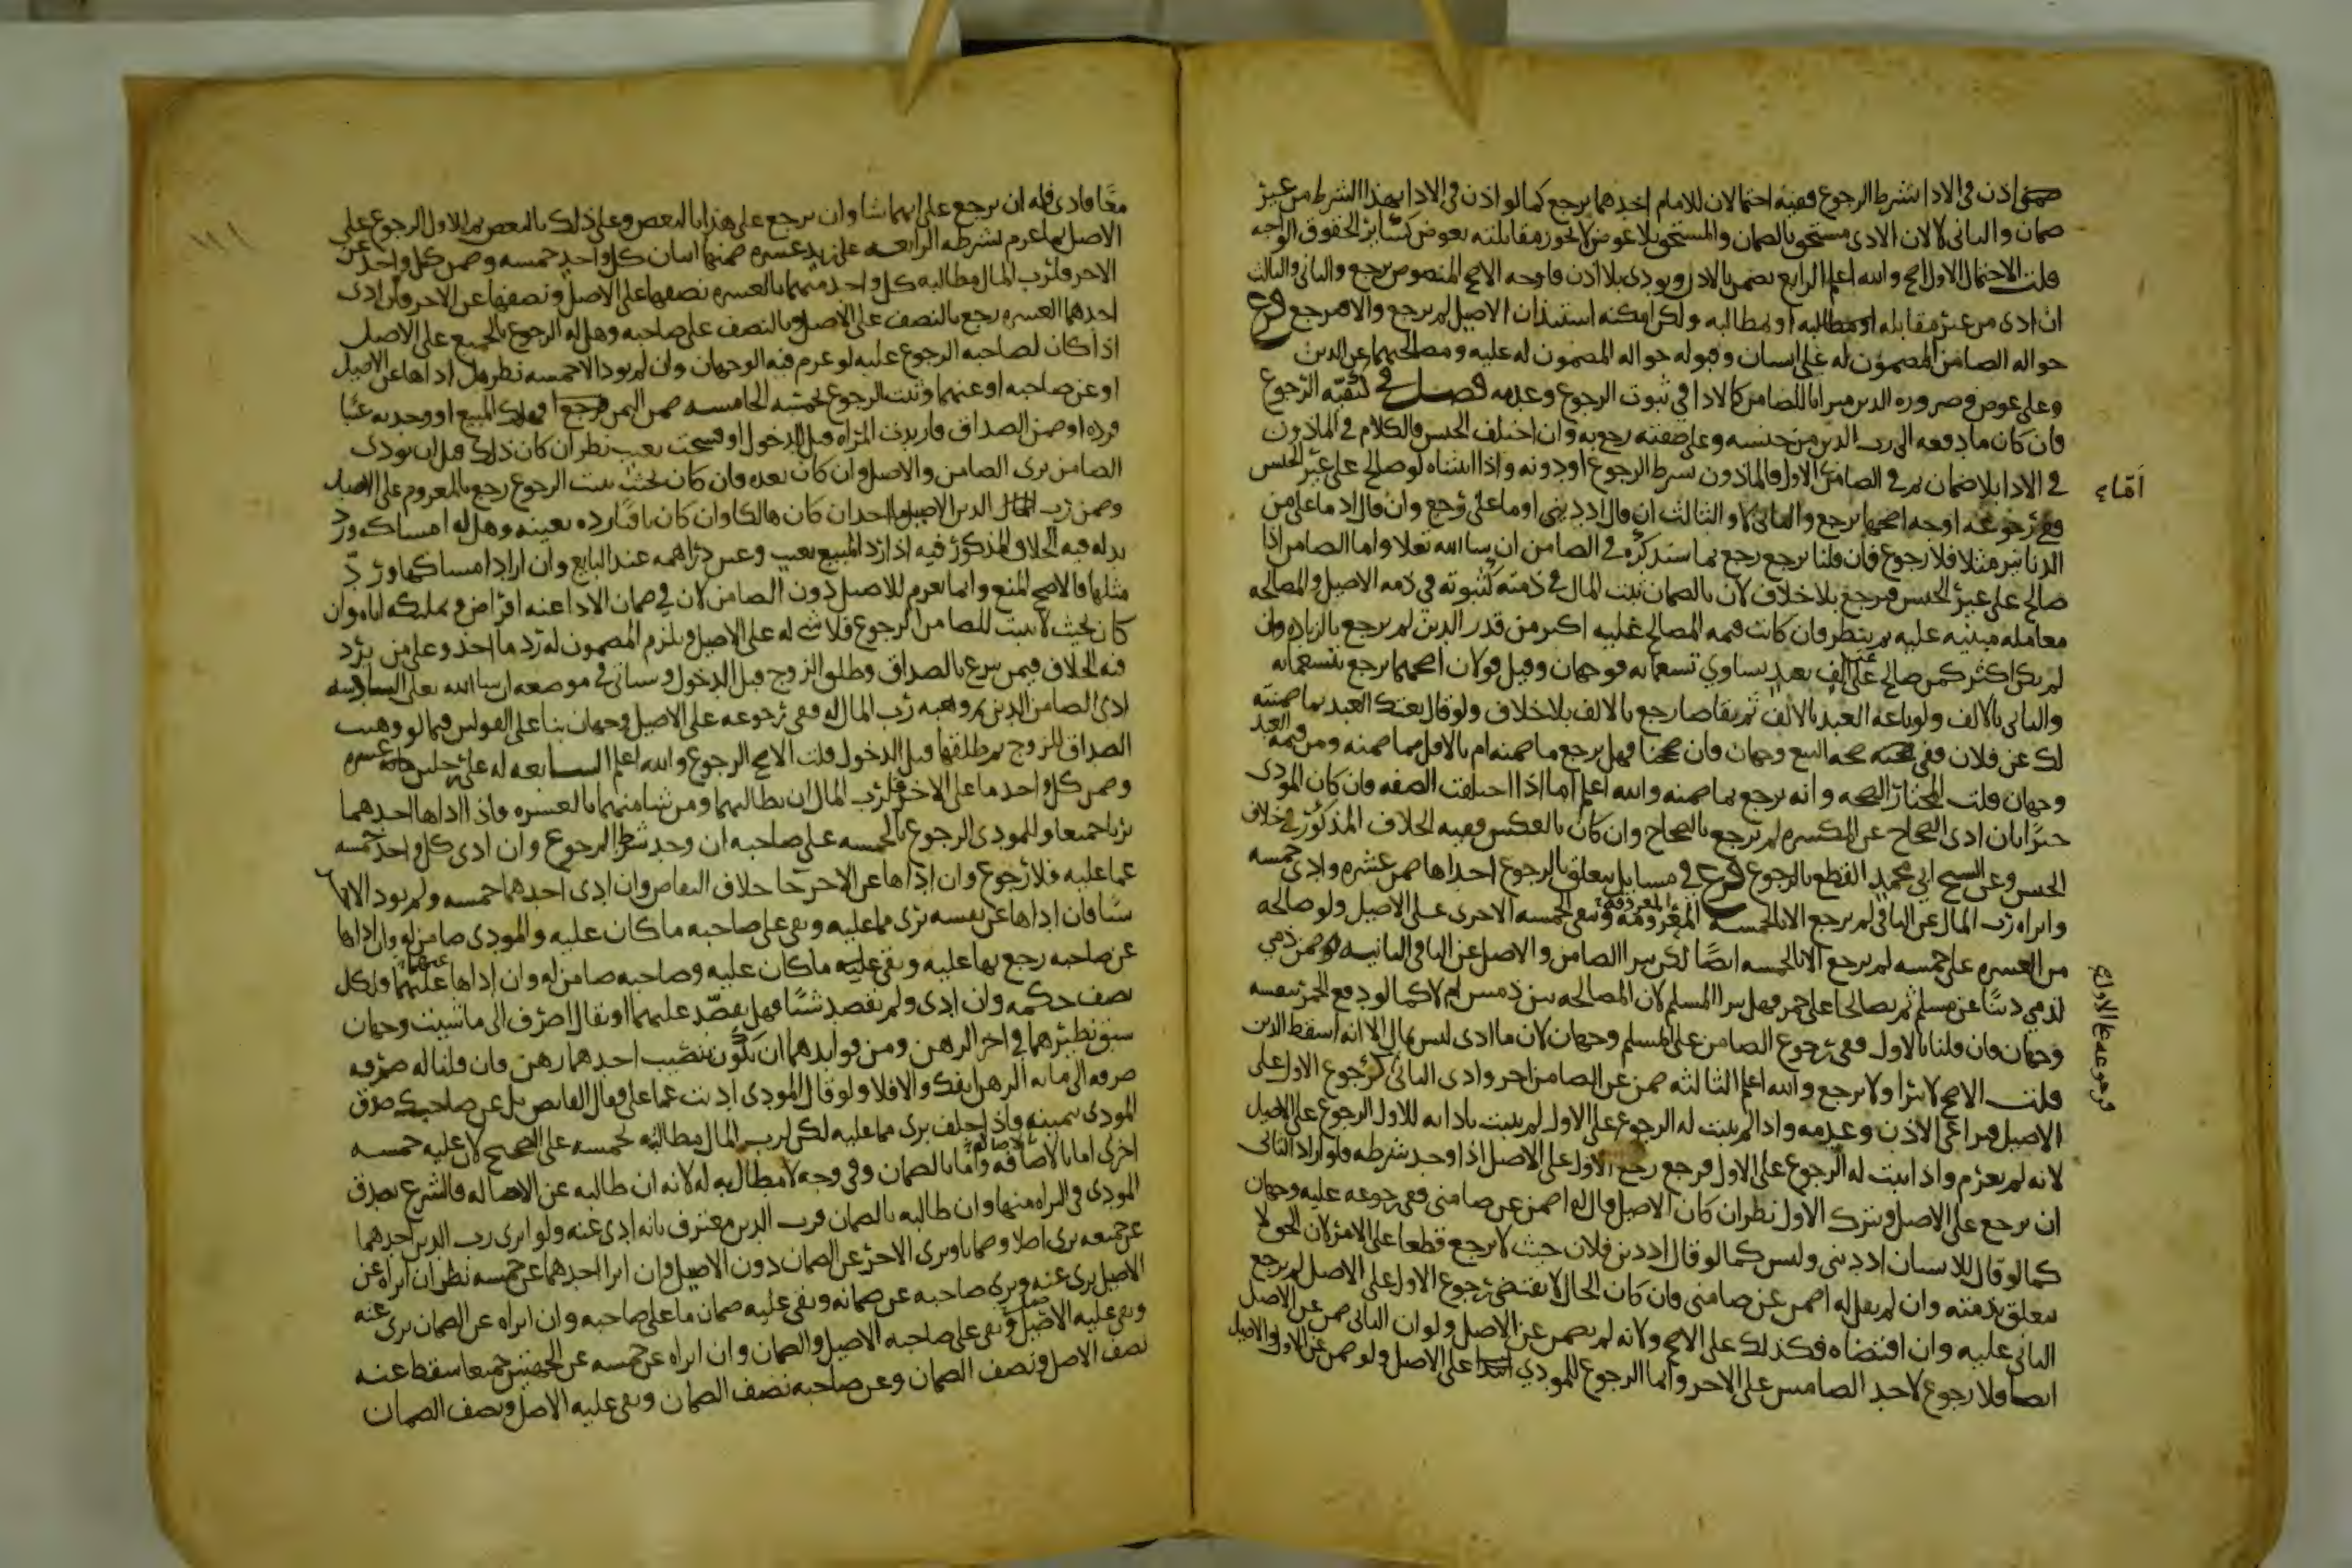 ضمني اذن في الادا بشرط الرجوع ففيه احتمالان للامام احدهما يرجع كما لو اذن في الادا بهذا الشرط من غير
ضمان والثاني لا لان الادى مستحق بالضمان والمستحق بلا عوض لا يجوز مقابلته بعوض كسائر الحقوق الواجبه
قلت الاحتمال الاول اصح والله اعلم الرابع يضمن بالاذن ويودى بلا اذن فاوجه الاصح المنصوص يرجع والثاني والثالث
ان ادى من غير مقابله او مطالبه ولكن امكنه استيذان الاصيل لم يرجع والا فيرجع فرع
حواله الضامن المضمون له على انسان وقبوله حواله المضمون له عليه ومصالحتهما عن الدين
وعلى عوض وصروره الدين ميراثا للضامن كالادا في ثبوت الرجوع وعدمه فصل في كيفية الرجوع
فان كان ما دفعه الى رب الدين من جنسه وعلى صفته رجع به وان اختلف الجنس فالكلام في الماذون
في الادا بلا ضمان ثم في الضامن الاول فالماذون بشرط الرجوع او دونه واذا اثبتناه لو صالح على غير الجنس
ففي رجوعه اوجه اصحها يرجع والثاني لا والثالث ان قال اد ديني او ما علي رجع وان قال اد ما علي من
الدنانير مثلا فلا رجوع فان قلنا يرجع رجع بما سنذكره في الضامن ان شا الله تعلا واما الضامن اذا
صالح على غير الجنس فيرجع بلا خلاف لان بالضمان يثبت المال في ذمته كثبوته في ذمه الاصيل والمصالحه
معامله مبنيه عليه ثم ينظر فان كانت قيمه المصالح عليه اكثر من قدر الدين لم يرجع بالزياده وان
لم يكن اكثر كمن صالح عن الف بعبد يساوي تسعمايه فوجهان وقيل قولان اصحهما يرجع بتسعمايه
والثاني بالالف ولو باعه العبد بالالف ثم تقاصا رجع بالالف بلا خلاف ولو قال بعتك العبد بما ضمنته
لك عن فلان ففي صحه البيع وجهان فان صححنا فهل يرجع ما ضمنه ام بالاقل مما ضمنه ومن قيمه العبد
وجهان قلت المختار الصحه وانه يرجع بما ضمنه والله اعلم اما اذا اختلفت الصفه فان كان المودى
خيرا بان ادى الصحاح عن المكسره لم يرجع بالصحاح وان كان بالعكس ففيه الخلاف المذكور في خلاف
الجنس وعن الشيخ ابي محمد القطع بالرجوع فرع في مسايل يتعلق بالرجوع احداها ضمن عشره وادى خمسه
وابراه رب المال عن الباقي لم يرجع الا بالخمسه المغرومه وتبقى الخمسه الاخرى على الاصيل ولو صالحه
من العشره على خمسه لم يرجع الا بالخمسه ايضا لكن يبرا الضامن والاصل عن الباقي الثانيه لو ضمن ذمي
لذمي دينا عن مسلم ثم تصالحا على خمر فهل يبرا المسلم لان المصالحه بين ذميين ام لا كما لو دفع الخمر بنفسه
وجهان فان قلنا بالاول ففي رجوع الضامن على المسلم وجهان لان ما ادى ليس بمال الا انه اسقط الدين
قلت الاصح لا يبرا ولا يرجع والله اعلم الثالثه ضمن عن الضامن اخر وادى الثاني كرجوع الاول على
الاصيل فيراعى الاذن وعدمه واذا لم يثبت له الرجوع على الاول لم يثبت بادايه للاول الرجوع على الاصيل
لانه لم يغرم واذا ثبت له الرجوع على الاول فرجع رجع الاول على الاصل اذا وجد شرطه فلو اراد الثاني
ان يرجع على الاصل ويترك الاول نظر ان كان الاصيل قال له اضمن عن ضامني ففي رجوعه عليه وجهان
كما لو قال لانسان اد ديني وليس كما لو قال اد دين فلان حيث لا يرجع قطعا على الامر لان الحق لا
يتعلق بذمته وان لم يقل له اضمن عن ضامني فان كان الحال لا يقتضي رجوع الاول على الاصل لم يرجع
الثاني عليه وان اقتضاه فكذلك على الاصح ولانه لم يضمن عن الاصل ولو ان الثاني ضمن عن الاصل
ايضا فلا رجوع لاحد الضامنين على الاخر وانما الرجوع للمودي على الاصل ولو ضمن عن الاول والاصيل
اما ع
فرجوعه على الاول ع
معا فادى فله ان يرجع على ايهما شا وان يرجع على هذا بالبعض وعلى ذلك بالبعض ثم للاول الرجوع على
الاصل بما غرم بشرطه الرابعه على زيد عشره ضمنها اثنان كل واحد خمسه وضمن كل واحد عن
الاخر فلرب المال مطالبه كل واحد منهما بالعشره نصفها على الاصل ونصفها عن الاخر فان ادى
احدهما العشره رجع بالنصف على الاصل وبالنصف على صاحبه وهل له الرجوع بالجميع على الاصل
اذا كان لصاحبه الرجوع عليه لو غرم فيه الوجهان وان لم يود الا خمسه نظر هل اداها عن الاصيل
او عن صاحبه او عنهما ويثبت الرجوع بحسبه الخامسه ضمن الثمن فهلك المبيع او وجد به عيبا
فرده او ضمن الصداق فارتدت المراه قبل الدخول او فسخت بعيب نظر ان كان ذلك قبل ان يودى
الضامن برى الضامن والاصل وان كان بعده فان كان بحيث يثبت الرجوع رجع بالمغروم على الاصيل
وضمن رب المال الدين للاصيل ما اخذ ان كان هالكا وان كان باقيا رده بعينه وهل له امساكه ورد
بدله فيه الخلاف المذكور فيه اذا رد المبيع بعيب وعين دراهمه عند البايع وان اراد امساكها ورد
مثلها فالاصح المنع وانما يغرم للاصيل دون الضامن لان في ضمان الادا عنه اقراض وتمليكه اياه وان
كان بحيث لا يثبت للضامن الرجوع فلا شي له على الاصيل ويلزم المضمون له رد ما اخذ وعلى من يرد
فيه الخلاف فيمن تبرع بالصداق وطلق الزوج قبل الدخول وسياتي في موضعه ان شا الله تعلى السادسه
ادى الضامن الدين ثم وهبه رب المال له ففي رجوعه على الاصيل وجهان بنا على القولين فيما لو وهبت
الصداق للزوج ثم طلقها قبل الدخول قلت الاصح الرجوع والله اعلم السابعه له على رجلين عشره
وضمن كل واحد ما على الاخر فلرب المال ان يطالبهما ومن شا منهما بالعشره واذا اداها احدهما
بريا جميعا وللمودى الرجوع بالخمسه على صاحبه ان وجد شرط الرجوع وان ادى كل واحد خمسه
عما عليه فلا رجوع وان اداها عن الاخر جا خلاف التقاص وان ادى احدهما خمسه ولم يود الاخر
شيا فان اداها عن نفسه برى مما عليه وبقى على صاحبه ما كان عليه والمودى ضامن له وان اداها
عن صاحبه رجع بها عليه وبقى عليه ما كان عليه وصاحبه ضامن له وان اداها عنهما فلكل
نصف حكمه وان ادى ولم يقصد شيا فهل يقسط عليهما او يقال اصرف الى ما شيت وجهان
سبق نظيرهما في اخر الرهن ومن فوايدهما ان يكون بنصيب احدهما رهن فان قلنا له صرفه
صرفه الى ما به الرهن انفك والا فلا ولو قال المودى اديت عما علي وقال القابض بل عن صاحبك صدق
المودى بيمينه واذا حلف برى مما عليه لكن لرب المال مطالبته بخمسه على الصحيح لان عليه خمسه
اخرى اما بالاصاله واما بالضمان وفي وجه لا مطالبه له لانه ان طالبه عن الاصاله فالشرع يصدق
المودى في البراه منها وان طالبه بالضمان فرب الدين معترف بانه ادى عنه ولو ابرى رب الدين احدهما
عن جميعه برى اصلا وضمانا وبرى الاخر عن الضمان دون الاصيل وان ابرا احدهما عن خمسه نظر ان ابراه عن
الاصيل برى عنه وبرى صاحبه عن ضمانه وبقى عليه ضمان ما على صاحبه وان ابراه عن الضمان برى عنه
وبقى عليه الاصيل وبقى على صاحبه الاصيل والضمان وان ابراه عن خمسه عن الجهتين جميعا سقط عنه
نصف الاصل ونصف الضمان وعن صاحبه نصف الضمان وبقى عليه الاصل ونصف الضمان